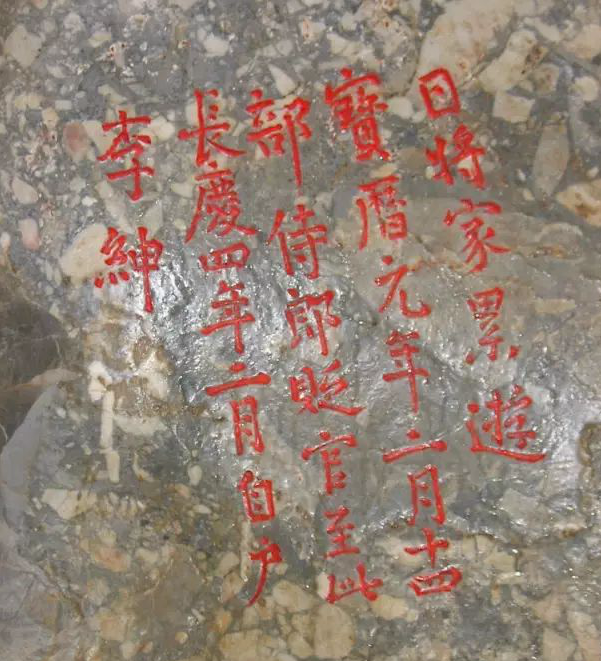 李紳
長慶四年二月自户
部侍郎貶官至此
寶曆元年二月十四
日将家累遊